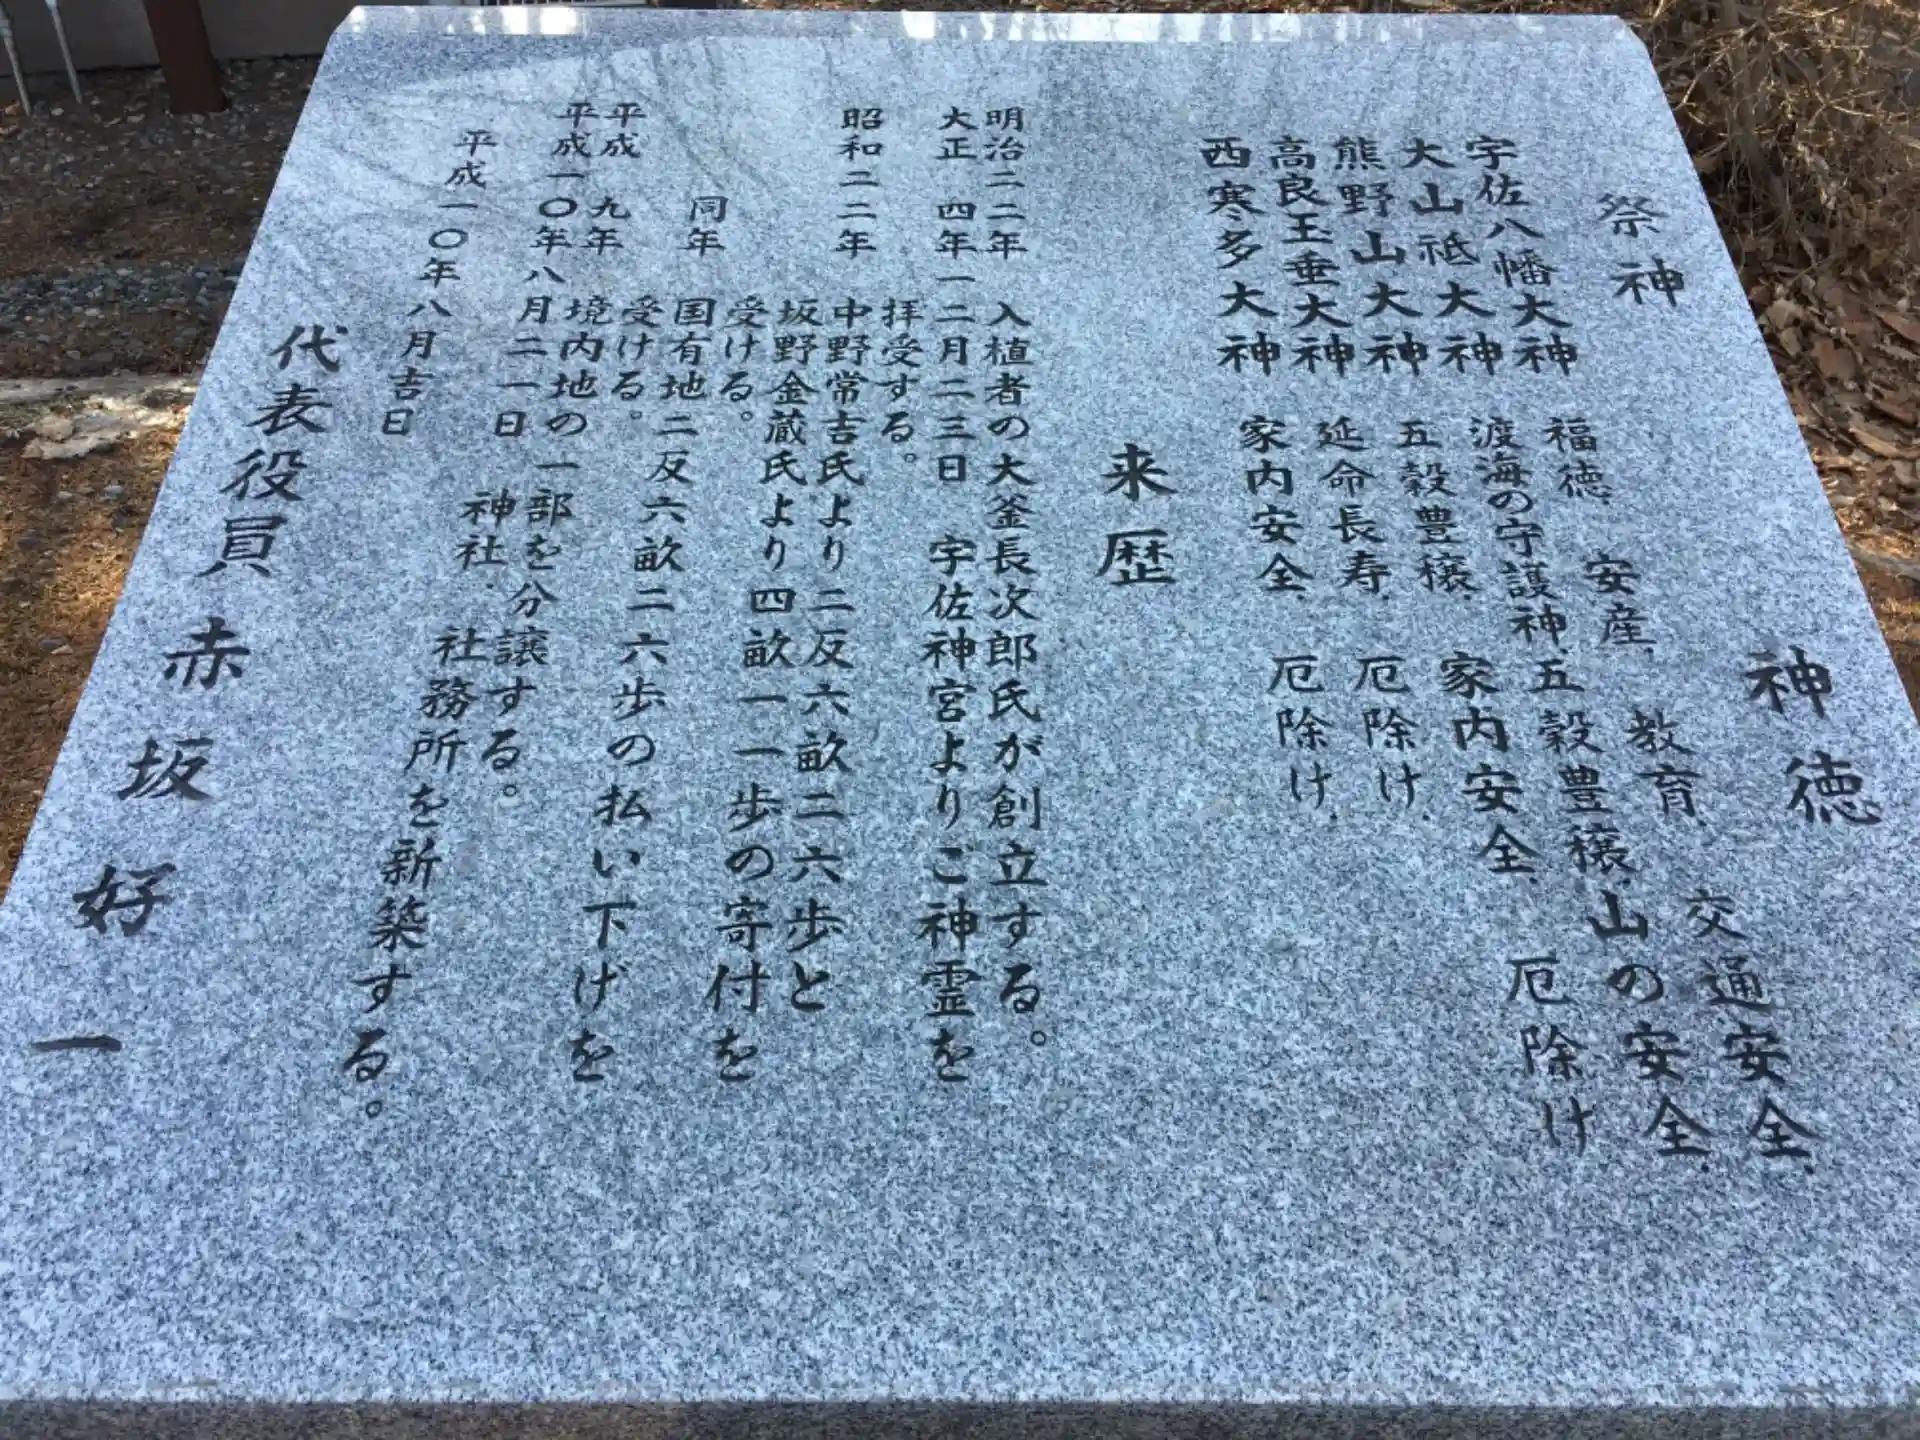 祭神　神徳
宇佐八幡大神　福徳、安産、教育、交通安全、
大山祗大神　渡海の守護神、五穀豊穣、山の安全
熊野山大神　五穀豊穣、家内安全、厄除け
高良玉垂大神　延命長寿、厄除け、
西寒多大神　家内安全、厄除け、
来歴
明治二二年　入植者の大釜長次郎氏が創立する。
大正　四年一二月二三日　宇佐神宮よりご神霊を
拝受する。
昭和二二年　中野常吉氏より二反六畝二六歩と
坂野金蔵氏より四畝一一歩の寄付を
受ける。
同年　国有地二反六畝二六歩の払い下げを
受ける。
平成　九年　境内地の一部を分譲する。
平成一〇年八月二一日　神社、社務所を新築する。
平成一〇年八月吉日
代表役員　赤坂好一